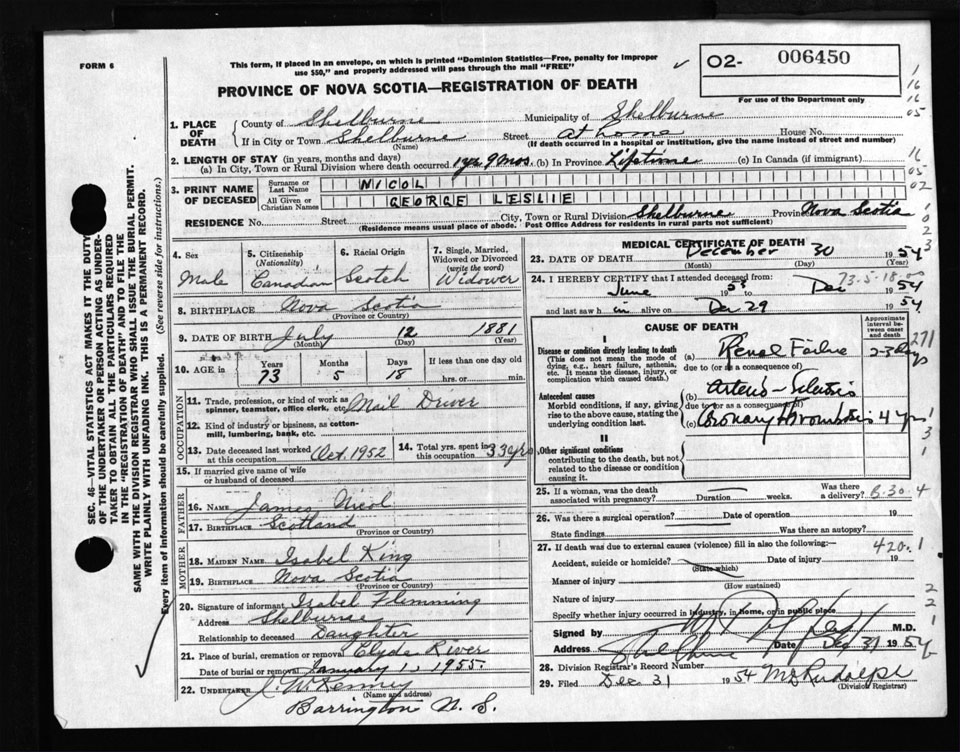 FORM 6
This form, if placed in an envelope, on which is printed "Dominion Statistics—Free, penalty for improper
use $50," and properly addressed will pass through the mail "FREE"
02- 006450
For use of the Department only
PROVINCE OF NOVA SCOTIA—REGISTRATION OF DEATH
1. PLACE OF DEATH County of Shelburne Municipality of Shelburne
If in City or Town Shelburne Street At home House No.
(Name) (If death occurred in a hospital or institution, give the name instead of street and number)
2. LENGTH OF STAY (in years, months and days)
(a) In City, Town or Rural Division where death occurred 1 yr 9 mos. (b) In Province Lifetime (c) In Canada (if immigrant)
3. PRINT NAME OF DECEASED Surname or Last Name NICOL
All Given or Christian Names GEORGE LESLIE
RESIDENCE No. Street City, Town or Rural Division Shelburne Province Nova Scotia
(Residence means usual place of abode. Post Office Address for residents in rural parts not sufficient)
4. Sex Male
5. Citizenship (Nationality) Canadian
6. Racial Origin Scotch
7. Single, Married, Widowed or Divorced (write the word) Widower
8. BIRTHPLACE Nova Scotia
(Province or Country)
9. DATE OF BIRTH July 12 1881
(Month) (Day) (Year)
10. AGE in Years 73 Months 5 Days 18 If less than one day old
hrs. or min.
OCCUPATION
11. Trade, profession, or kind of work as spinner, teamster, office clerk, etc. Mail Driver
12. Kind of industry or business, as cotton-mill, lumbering, bank, etc.
13. Date deceased last worked at this occupation Oct. 1952
14. Total yrs. spent in this occupation 33 yrs
15. If married give name of wife or husband of deceased
FATHER
16. NAME James Nicol
17. BIRTHPLACE Scotland
(Province or Country)
MOTHER
18. MAIDEN NAME Isabel King
19. BIRTHPLACE Nova Scotia
(Province or Country)
20. Signature of informant Isabel Flemming
Address Shelburne
Relationship to deceased Daughter
21. Place of burial, cremation or removal Clyde River
Date of burial or removal January 1, 1955.
22. UNDERTAKER J. McKenney
(Name and address)
Barrington N. S.
MEDICAL CERTIFICATE OF DEATH
23. DATE OF DEATH December 30 1954
(Month) (Day) (Year)
24. I HEREBY CERTIFY that I attended deceased from: 73-5-18-00
June 1953 to Dec 1954
and last saw h im alive on Dec 29 1954
CAUSE OF DEATH
Approximate interval between onset and death
I
Disease or condition directly leading to death (a) Renal Failure 2-3 days
(This does not mean the mode of dying, e.g., heart failure, asthenia, etc. It means the disease, injury, or complication which caused death.)
due to (or as a consequence of)
Antecedent causes (b) Arterio-Sclerosis
Morbid conditions, if any, giving rise to the above cause, stating the underlying condition last.
due to (or as a consequence of)
(c) Coronary Thrombosis 4 yrs
II
Other significant conditions
contributing to the death, but not related to the disease or condition causing it.
25. If a woman, was the death associated with pregnancy? Duration weeks. Was there a delivery? B.30.4
26. Was there a surgical operation? Date of operation 19
State findings Was there an autopsy?
27. If death was due to external causes (violence) fill in also the following: 420.1
Accident, suicide or homicide? Date of injury 19
(State which)
Manner of injury
(How sustained)
Nature of injury
Specify whether injury occurred in industry, in home, or in public place
Signed by M.D.
Address Shelburne Date Dec 31 1954
28. Division Registrar's Record Number
29. Filed Dec 31 1954 Rudolph
(Division Registrar)
SEC. 46—VITAL STATISTICS ACT MAKES IT THE DUTY
OF THE UNDERTAKER OR PERSON ACTING AS UNDER-
TAKER TO OBTAIN ALL THE PARTICULARS REQUIRED
IN THE "REGISTRATION OF DEATH" AND TO FILE THE
SAME WITH THE DIVISION REGISTRAR WHO SHALL ISSUE THE BURIAL PERMIT.
WRITE PLAINLY WITH UNFADING INK. THIS IS A PERMANENT RECORD.
Every item of information should be carefully supplied. (See reverse side for instructions.)